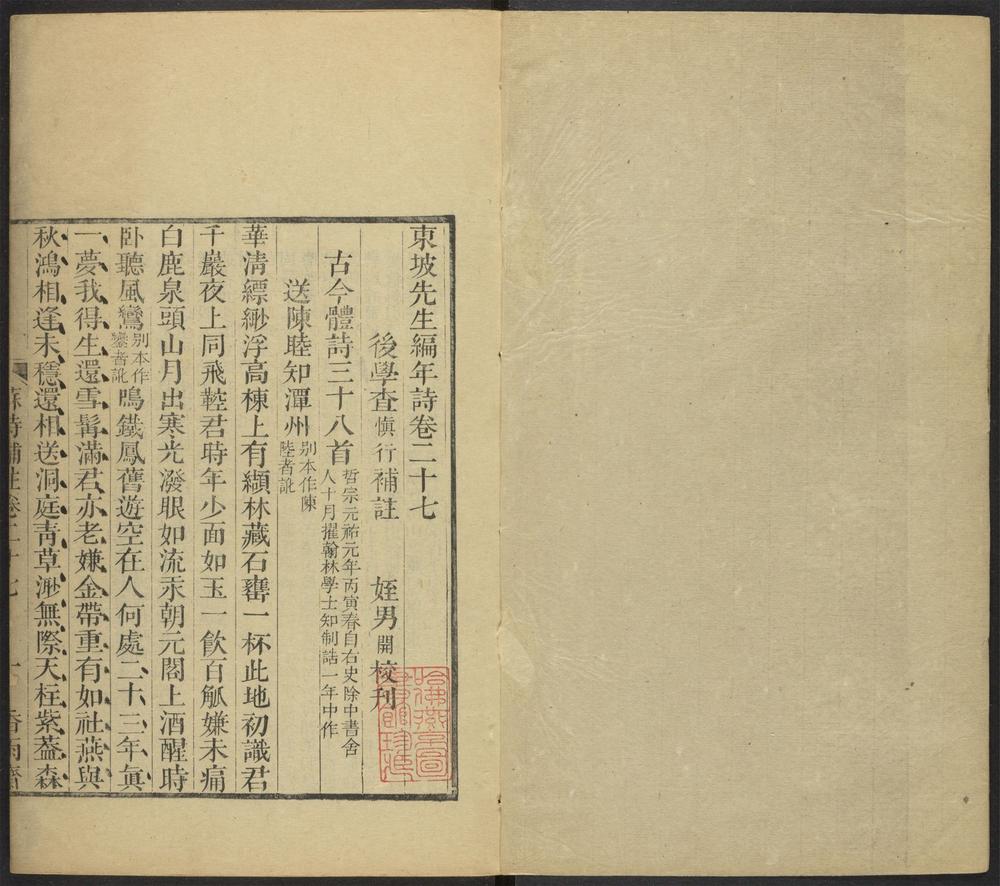 東坡先生編年詩卷二十七
後學查慎行補註 姪男開校刊
古今體詩三十八首哲宗元祐元年丙寅春自右史除中書舍人十月擢翰林學士知制誥一年中作
送陳睦知潭州别本作陳陸者訛
華清縹緲浮高棟上有纈林藏石甕一杯此地初識君
千巖夜上同飛鞚君時年少面如玉一飲百觚嫌未痛
白鹿泉頭山月出寒光潑眼如流汞朝元閣上酒醒時
卧聽風鸞别本作鑾者訛鳴鐵鳳舊遊空在人何處二十三年眞
一夢我得生還雪髯滿君亦老嫌金帶重有如社燕與
秋鴻相逢未穩還相送洞庭青草渺無際天柱紫葢森
蘇詩補註卷二十七 一 香雨齋